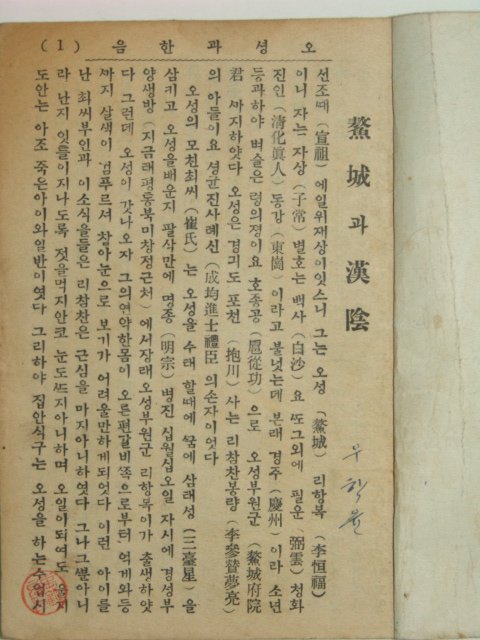 오셩과한음 (1)
鰲城과漢陰
션조때 (宣祖) 에일위재상이잇스니 그는 오셩 (鰲城) 리항복 (李恒福)
이니 자는자상 (子常) 별호는백사 (白沙) 요 또그외에 필운 (弼雲) 청화
진인 (淸化眞人) 동강 (東崗) 이라고불넛는데 본래 경주 (慶州) 이라 소년
등과하야 벼슬은령의졍이요 호종공 (扈從功) 으로 오셩부원군 (鰲城府院
君 까지하얏다 오셩은경긔도 포천 (抱川) 사는리참찬몽량 (李參贊夢亮)
의아들이요 셩균진사례신 (成均進士禮臣) 의손자이엇다
오셩의모친최씨 (崔氏) 는 오셩을 수태 할때에 꿈에 삼래셩 (三臺星) 을
삼키고 오셩을배운지 팔삭만에 명종 (明宗) 병진 십월십오일 자시에 경셩부
양생방 (지금래평통북미창졍근처) 에서장래오셩부원군 리항복이가 출생하얏
다 그런데 오셩이 갓나오자 그의연약한몸이 오른편갈비쪽으로부터 억게와등
까지 살색이 검푸르셔 참아눈으로 보기가 어려울만하게되엇다 이런 아이를
난 최씨부인과 이소식을들은 리참찬은 근심을 마지아니하엿다 그나그뿐아니
라 난지 잇틀이지나도록 젓을먹지안코 눈도뜨지아니하며 오일이되여도 울지
도안는 아조 죽은아이와일반이엿다 그리하야 집안식구는 오셩을 하는수업시
우학율